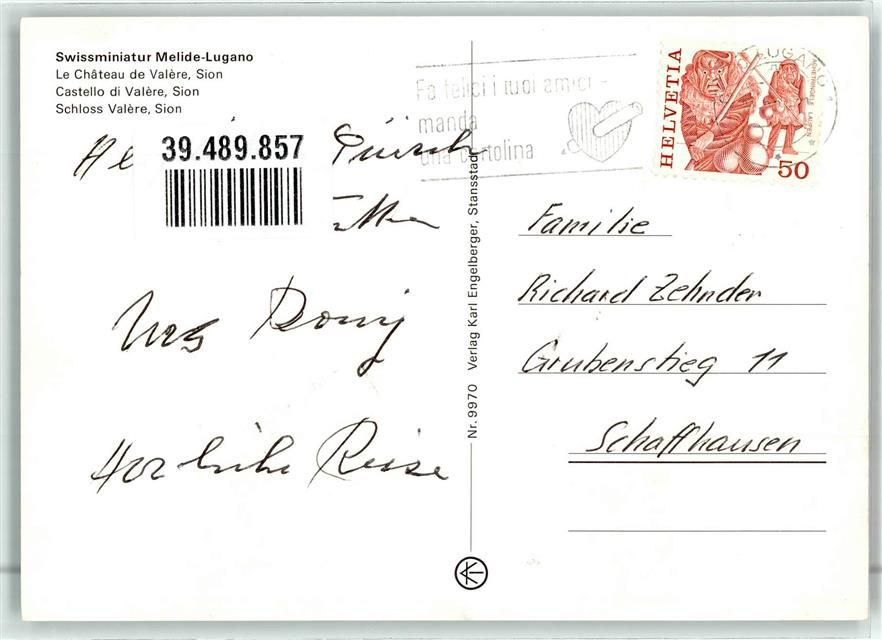 Swissminiatur Melide-Lugano
Le Château de Valère, Sion
Castello di Valère, Sion
Schloss Valère, Sion
39.489.857
Urs
Reise
Nr. 9970 Verlag Karl Engelberger, Stansstad
Fa felici i tuoi amici -
manda
una cartolina
LUGANO 1
HELVETIA
50
Familie
Richard Zehnder
Grubenstieg 11
Schaffhausen